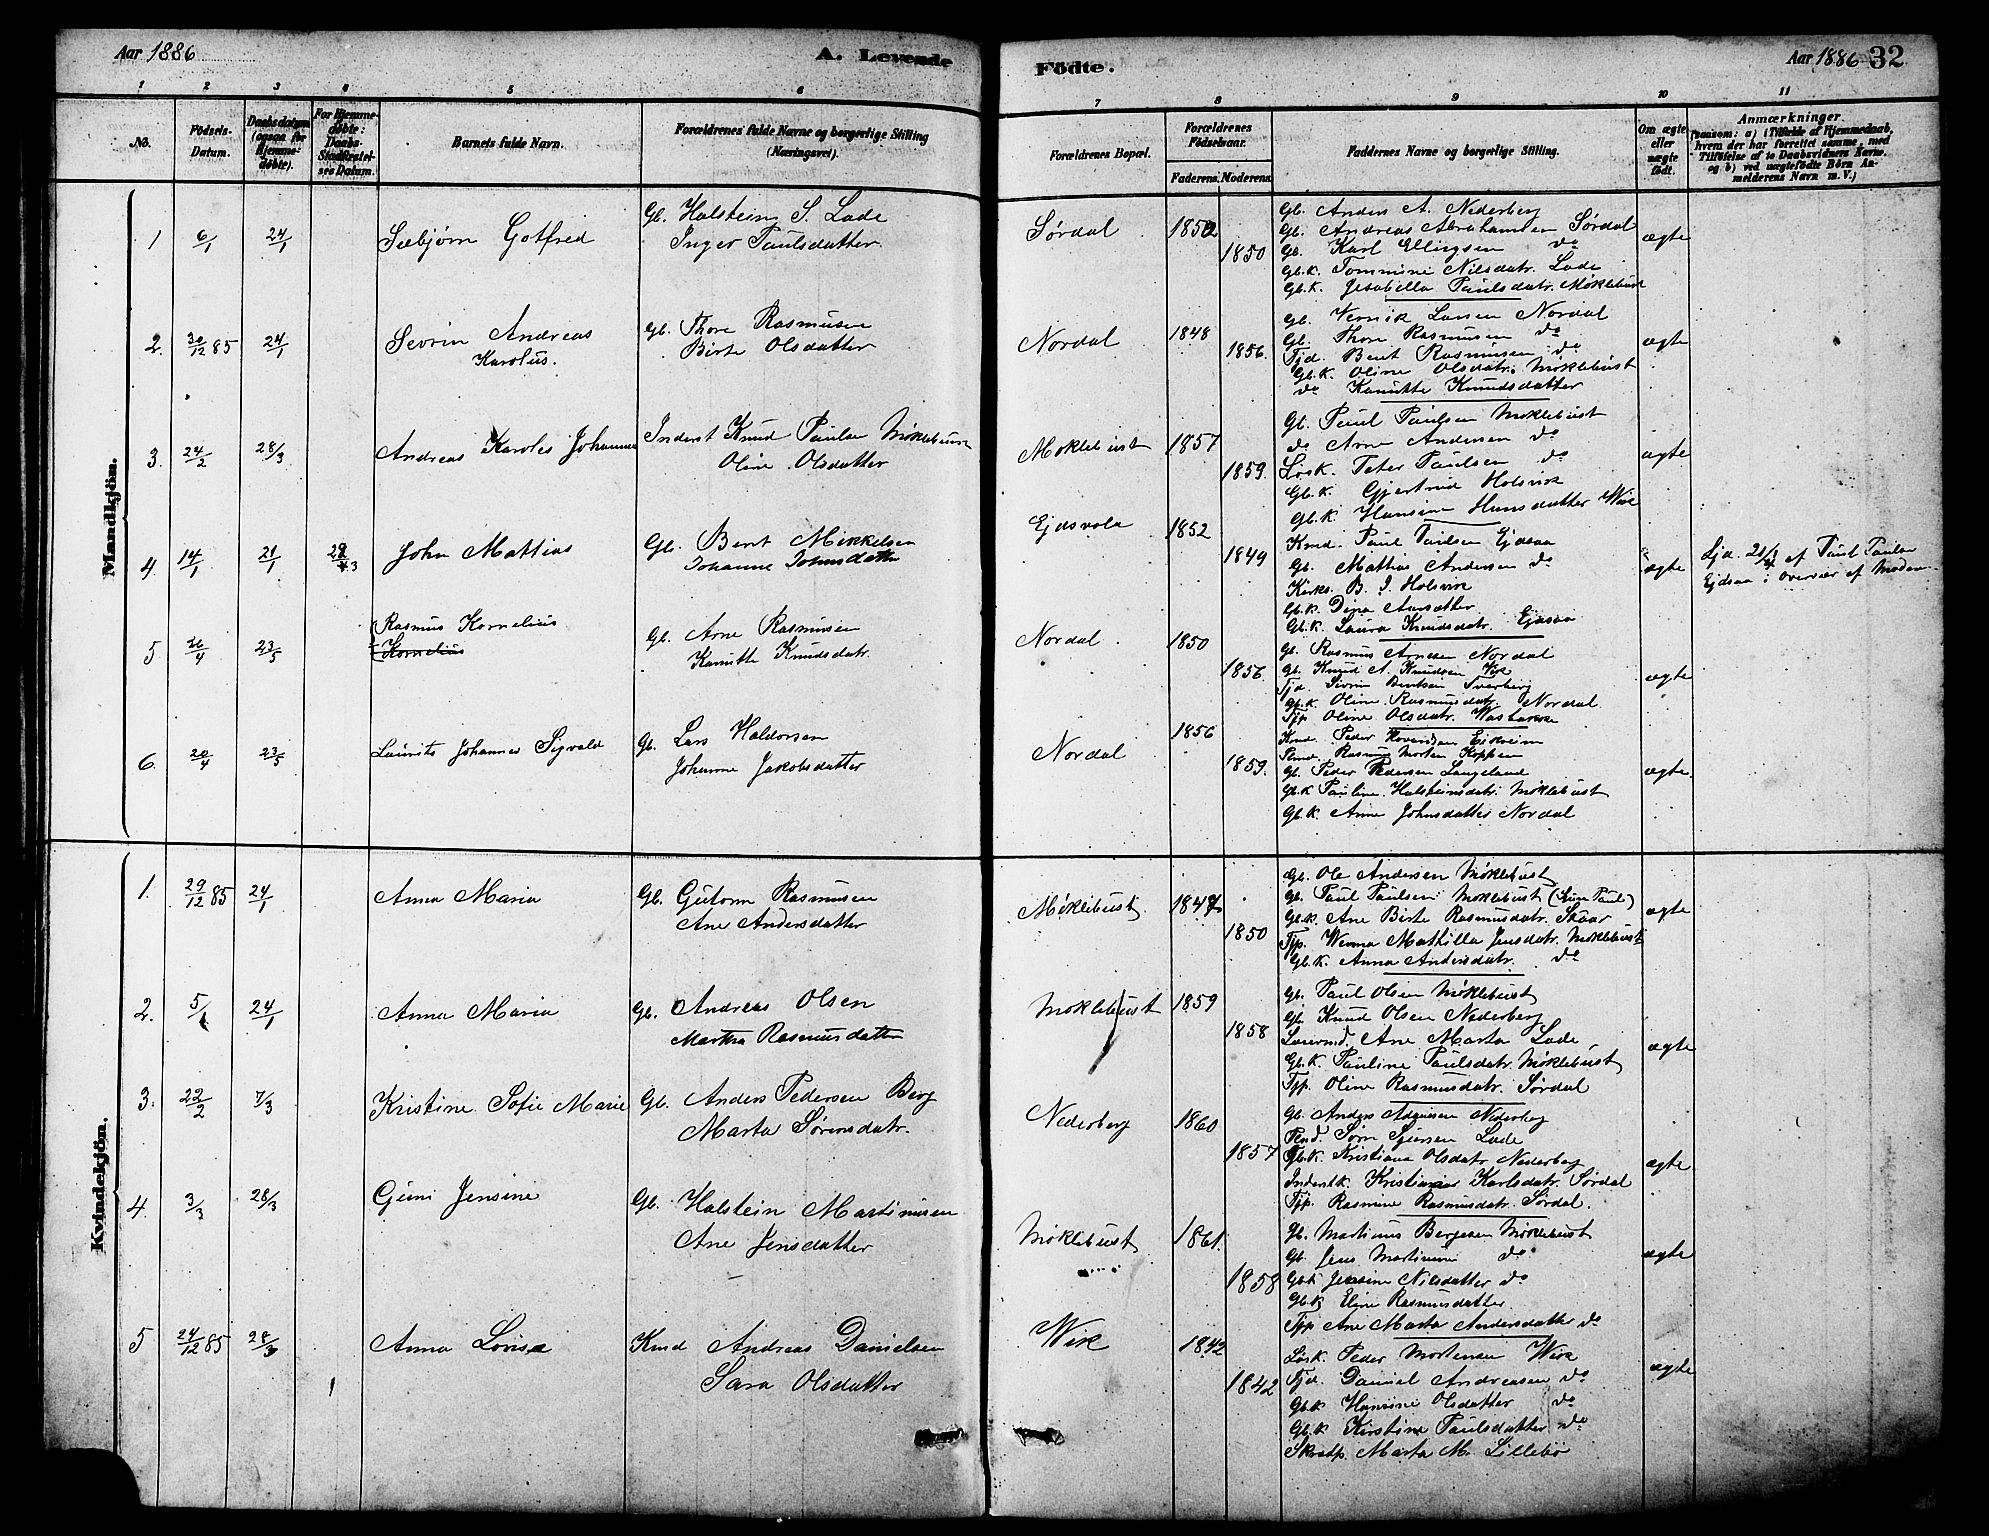 Aar 1886
A. Levende
Födte.
Aar 1886 32
1 2 3 4 5 6
7 8 9 10 11
No.
Födsels-Datum.
Daabsdatum (ogsaa for Hjemme-døbte).
For Hjemme-døbte: Daabs-Stadfæstel-ses Datum.
Barnets fulde Navn.
Forældrenes fulde Navne og borgerlige Stilling (Næringsvei).
Forældrenes Bopæl.
Forældrenes Födselsaar.
Faderens. Moderens.
Faddernes Navne og borgerlige Stilling.
Om ægte eller uægte født.
Anmærkninger.
(saasom: a) i Tilfælde af Hjemmedaab, hvem der har forrettet samme, med Tilføielse af to Daabsvidners Navne. og b) ved uægtefødte Börn An-melderens Navn m. V.)
Mandkjön.
1 6/1 24/1 Sæbjørn Gotfred
Gb. Halstein S. Lade
Inger Paulsdatter
Sørdal 1852 1850
Gb. Anders A. Nederberg
Gb. Andreas Abrahamsen Sørdal
Gb. Karl Ellingsen do
Gb.k. Tommine Nilsdatr. Lade
Gb.k. Jesabella Paulsdatr. Møklebust
ægte
2. 30/12 85 24/1 Sevrin Andreas
Karolus.
Gb. Thore Rasmusen
Birte Olsdatter
Nordal 1848 1856.
Gb. Larsen Nordal
Gb. Thore Rasmusen do
Tjd. Bent Rasmusen do
Gb.k. Oline Olsdatr. Møklebust
do Kanutte Knudsdatter
ægte
3. 24/2 28/3 Andreas Karoles Johannes
Inderst Knud Paulsen Møklebust
Oline Olsdatter
Møklebust 1857 1859.
Gb. Paul Paulsen Møklebust
do Arne Andersen do
Løsk. Peter Paulsen do
Gb.k. Gjertrud Holsvik
Gb.k Hansine Hansdatter Wik
ægte
4. 14/1 21/1 John Mattias
Gb. Bent Mikkelsen
Johanne Johnsdatter
Ejdsvola 1852 1849
Kmd. Paul Paulsen Ejdsaa
Gb. Mattias Andersen do
Kirks. B. J. Holsvik
Gb.k. Dina
Gb.k. Laura Knudsdatr. Ejdsaa
ægte
af Paul Paulsen
Ejdsaa i Overvær af Moderen
5. 26/4 23/5 Rasmus Kornelius
Kornelius
Gb. Arne Rasmusen
Kanutte Knudsdatr.
Nordal. 1850 1856.
Gb. Rasmus Arnesen Nordal
Gb. Knud A. Knudsen Wik
Tjd. Sivrin Bentsen Tverberg
Gb.k. Oline Rasmusdatr. Nordal
Tjp. Oline Olsdatr.
ægte
6. 20/4 23/5 Laurits Johannes Sigvald
Gb. Lars Haldorsen
Johanne Jakobsdatter
Nordal 1856 1859.
Kmd. Peder
Rasmus Morten Koppen
Gb. Peder Pedersen Langeland
Gb.k Pauline Halsteinsdatr. Møklebust
Gb.k. Anne Johnsdatter Nordal
ægte.
Kvindekjön.
1. 29/12 85 24/1 Anna Maria
Gb. Gutorm Rasmusen
Ane Andersdatter
Møklebust 1847 1850
Gb. Ole Andersen Møklebust
Gb. Paul Paulsen Møklebust
Gb.k. Ane Birte Rasmusdatr. Skaar
Tjp. Mathilla Jensdatr. Møklebust
Gb.k. Anna Andersdatr. do
ægte
2. 5/1 24/1 Anna Maria
Gb. Andreas Olsen
Martha Rasmusdatter
Møklebust 1859 1858
Gb. Paul Olsen Møklebust
Gb. Knud Olsen Nederberg
Ane Marta Lade
Gb.k. Pauline Paulsdatr. Møklebust
Tjp. Oline Rasmusdatr. Sørdal
ægte
3. 23/2 7/3 Kristine Sofie Marie
Gb. Anders Pedersen Berg
Marta Sørensdatr.
Nederberg 1860 1857
Gb. Anders Nederberg
Lade
Gb.k. Kristiana Olsdatr Nederberg
Inderstk. Karlsdatr. Sørdal
Tjp. Rasmine Rasmusdatr. Sørdal.
ægte
4. 3/3 28/3 Guni Jensine
Gb. Halstein Martinusen
Ane Jensdatter
Møklebust 1861. 1858
Gb. Martinus Børgesen Møklebust
Gb. Jens Martinusen do
Gb.k Jensine Nilsdatter do
Gb.k Eline Rasmusdatter
Tjp Ane Marta Andersdatter do
ægte
5 24/12 85 28/3 Anna Lovise
Kmd Andreas Danielsen
Sara Olsdatter
Wik 1842 1842
Løsk. Peder Mortensen Wik
Tjd. Daniel Andreasen do
Gb.k Hansine Olsdatter do
Gb.k Kirstine Paulsdatter do
Marta M. Lillebø
ægte